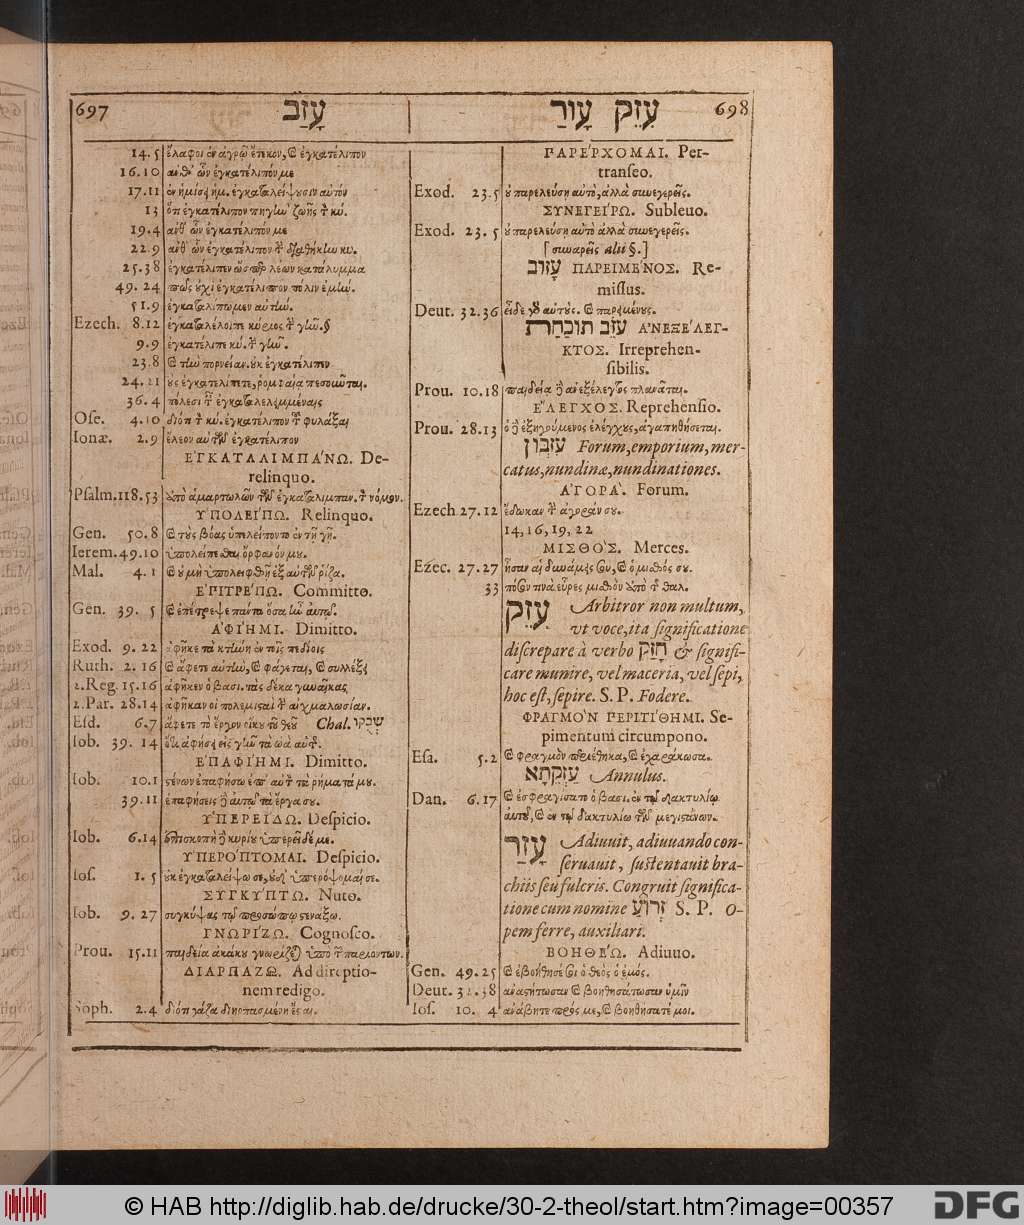 697 עָזַב
14.5 ἔλαφοι ἐν ἀγρῷ ἔτεκον, ϗ ἐγκατέλιπον
16.10 ἀνθ' ὧν ἐγκατέλιπόν με
17.11 ἐν ἡμίσει ἡμ. ἐγκαταλείψουσιν αὐτόν
13 ὅτι ἐγκατέλιπον πηγὴν ζωῆς τ κύ.
19.4 ἀνθ' ὧν ἐγκατέλιπόν με
22.9 ἀνθ' ὧν ἐγκατέλιπον τ διαθήκην κυ.
25.38 ἐγκατέλιπεν ὥσπερ λέων κατάλυμμα
49.24 πῶς οὐχὶ ἐγκατέλιπον πόλιν ἐμὴν.
51.9 ἐγκαταλίπωμεν αὐτὴν.
Ezech. 8.12 ἐγκαταλέλοιπε κύριος τ γῆν.§
9.9 ἐγκατέλιπε κύ. τ γῆν.
23.8 ϗ τὴν πορνείαν. οὐκ ἐγκατέλιπεν
24.21 οὓς ἐγκατελίπετε, ῥομφαίᾳ πεσοῦνται.
36.4 πόλεσι τ ἐγκαταλελειμμέναις
Ose. 4.10 διότι τ κύ. ἐγκατέλιπον τ φυλάξαι
Ionæ. 2.9 ἔλεον αὐτῶν ἐγκατέλιπον
ἘΓΚΑΤΑΛΙΜΠΆΝΩ. De-
relinquo.
Psalm. 118.53 ἀπὸ ἁμαρτωλῶν τῶν ἐγκαταλιμπαν. τ νόμον.
ὙΠΟΛΕΊΠΩ. Relinquo.
Gen. 50.8 ϗ τοὺς βόας ὑπελείποντο ἐν τῇ γῇ.
Ierem. 49.10 ὑπολείπεσθαι ὀρφανόν μου.
Mal. 4.1 ϗ οὐ μὴ ὑπολειφθῇ ἐξ αὐτῶν ῥίζα.
ἘΠΙΤΡΈΠΩ. Committo.
Gen. 39.5 ϗ ἐπέτρεψε πάντα ὅσα ἦν αὐτῷ.
ἈΦΊΗΜΙ. Dimitto.
Exod. 9.22 ἀφῆκε τὰ κτήνη ἐν τοῖς πεδίοις
Ruth. 2.16 ϗ ἄφετε αὐτὴν, ϗ φάγεται, ϗ συλλέξει
2.Reg. 15.16 ἀφῆκεν ὁ βασι. τὰς δέκα γυναῖκας
2.Par. 28.14 ἀφῆκαν οἱ πολεμισταὶ τ αἰχμαλωσίαν.
Esd. 6.7 ἄφετε τὸ ἔργον οἴκου τοῦ θεοῦ Chal. שְׁבֻקוּ
Iob. 39.14 ὅτι ἀφήσει εἰς γῆν τὰ ὠὰ αὐτ.
ἘΠΑΦΊΗΜΙ. Dimitto.
Iob. 10.1 στένων ἐπαφήσω ἐπ' αὐτ τὰ ῥήματά μου.
39.11 ἐπαφήσεις δὲ αὐτῷ τὰ ἔργα σου.
ὙΠΕΡΕΊΔΩ. Despicio.
Iob. 6.14 ἐπισκοπὴ δὲ κυρίου ὑπερεῖδέ με.
ὙΠΕΡΌΠΤΟΜΑΙ. Despicio.
Ios. 1.5 οὐκ ἐγκαταλείψω σε, οὐδ' ὑπερόψομαί σε.
ΣΥΓΚΎΠΤΩ. Nuto.
Iob. 9.27 συγκύψας τῷ προσώπῳ στενάξω.
ΓΝΩΡΊΖΩ. Cognosco.
Prou. 15.11 παιδεία ἀκάκου γνωρίζεται ὑπὸ τ παριόντων.
ΔΙΑΡΠΆΖΩ. Ad direptio-
nem redigo.
Soph. 2.4 διότι γάζα διηρπασμένη ἔσται.
עִזֵק עָזַר 698
ΠΑΡΈΡΧΟΜΑΙ. Per-
transeo.
Exod. 23.5 οὐ παρελεύσῃ αὐτὸ, ἀλλὰ συνεγερεῖς.
ΣΥΝΕΓΕΊΡΩ. Subleuo.
Exod. 23.5 οὐ παρελεύσῃ αὐτὸ ἀλλὰ συνεγερεῖς.
[ συναρεῖς alii §.]
עָזוּב ΠΑΡΕΙΜΈΝΟΣ. Re-
missus.
Deut. 32.36 εἶδε γὸ αὐτοὺς. ϗ παρειμένους.
עֹזֵב תּוֹכַחַת ἈΝΕΞΈΛΕΓ-
ΚΤΟΣ. Irreprehen-
sibilis.
Prou. 10.18 παιδεία δὲ ἀνεξέλεγκτος πλανᾶται.
ἜΛΕΓΧΟΣ. Reprehensio.
Prou. 28.13 ὁ δὲ ἐξηγούμενος ἐλέγχους, ἀγαπηθήσεται.
עִזְבוֹן Forum, emporium, mer-
catus, nundinæ, nundinationes.
ἈΓΟΡᾺ. Forum.
Ezech. 27.12 ἔδωκαν τ ἀγοράν σου.
14, 16, 19, 22
ΜΙΣΘῸΣ. Merces.
Ezec. 27.27 ἦσαν αἱ δυνάμεις σου, ϗ ὁ μισθός σου.
33 πόσον τινὰ εὗρες μισθὸν ἀπὸ τ θαλ.
עִזֵק Arbitror non multum,
vt voce, ita significatione
discrepare à verbo חָזַק & signifi-
care munire, vel maceria, vel sepi,
hoc est, sepire. S. P. Fodere.
ΦΡΑΓΜῸΝ ΠΕΡΙΤΊΘΗΜΙ. Se-
pimentum circumpono.
Esa. 5.2 ϗ φραγμὸν περιέθηκα, ϗ ἐχαράκωσα.
עִזְקְתָא Annulus.
Dan. 6.17 ϗ ἐσφραγίσατο ὁ βασι. ἐν τῷ δακτυλίῳ
αὐτοῦ, ϗ ἐν τῷ δακτυλίῳ τῶν μεγιστάνων.
עָזַר Adiuuit, adiuuando con-
seruauit, sustentauit bra-
chiis seu fulcris. Congruit significa-
tione cum nomine זְרוֹעַ S. P. O-
pem ferre, auxiliari.
ΒΟΗΘΈΩ. Adiuuo.
Gen. 49.25 ϗ ἐβοήθησέ σοι ὁ θεὸς ὁ ἐμός.
Deut. 32.38 ἀναστήτωσαν ϗ βοηθησάτωσαν ὑμῖν
Ios. 10.4 ἀνάβητε πρός με, ϗ βοηθήσατέ μοι.
© HAB http://diglib.hab.de/drucke/30-2-theol/start.htm?image=00357 DFG